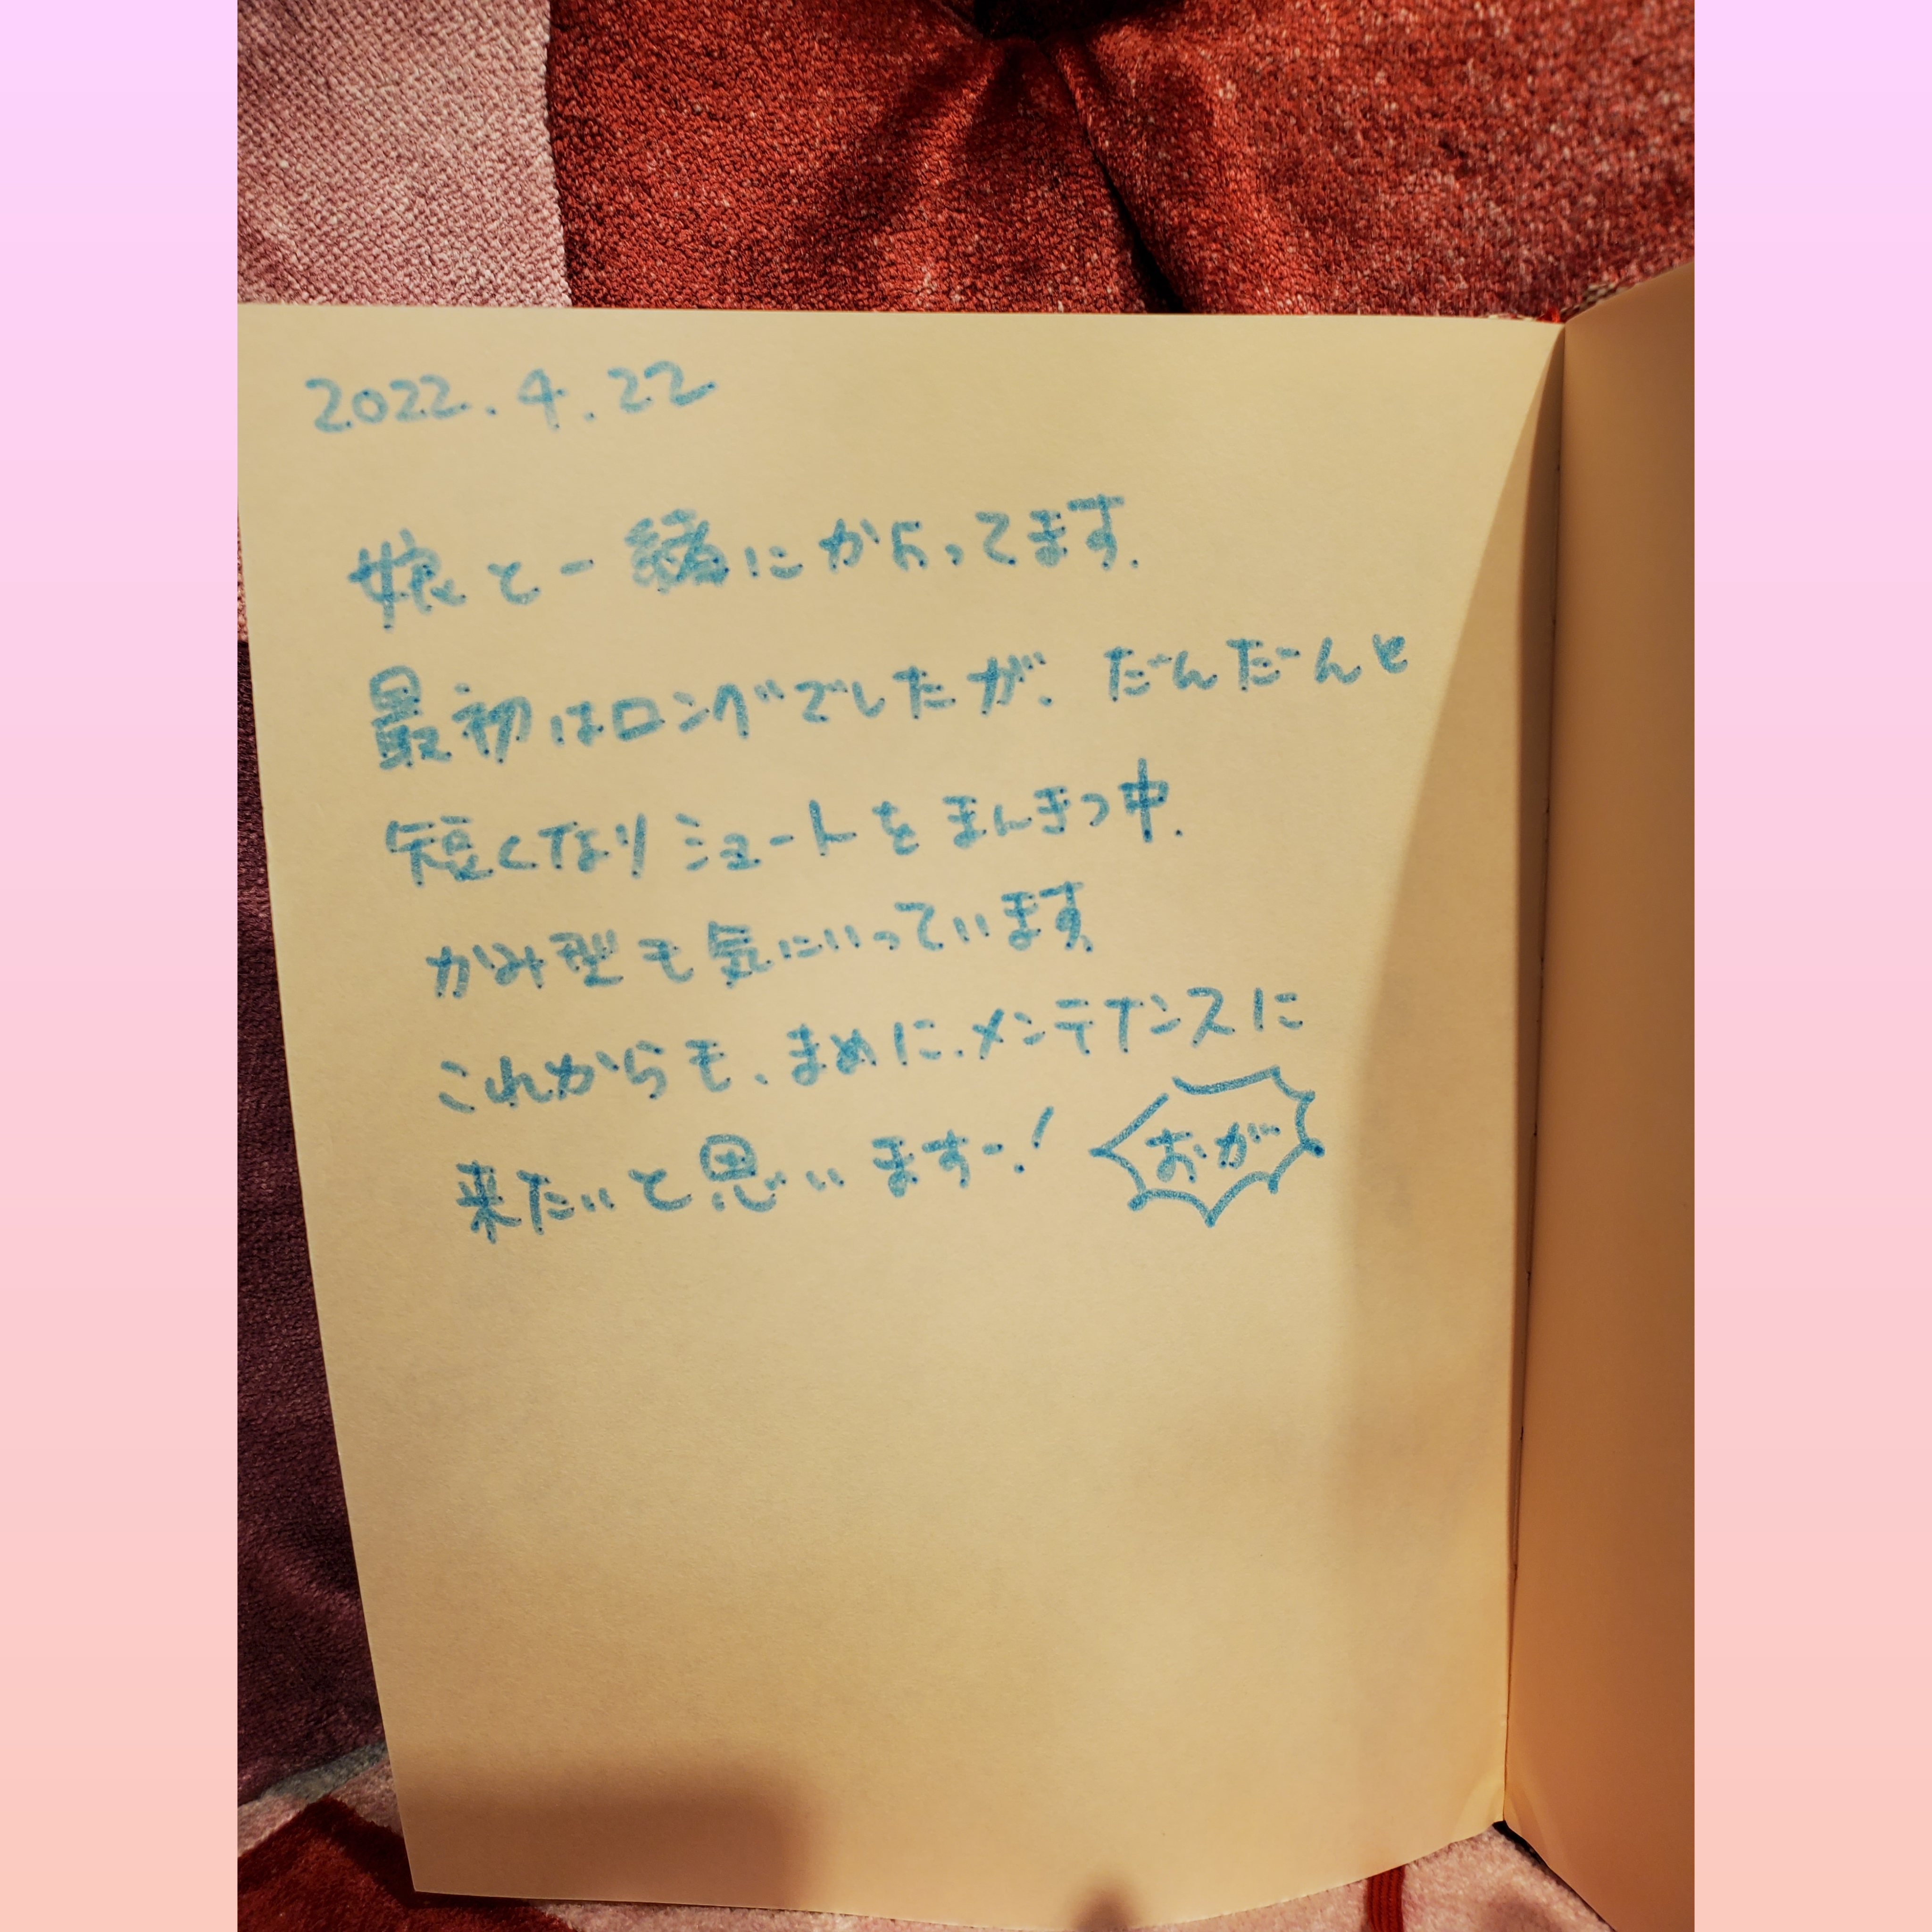 2022.4.22
娘と一緒にかよってます.
最初はロングでしたが、だんだーんと
短くなりショートをまんきつ中.
かみ型も気にいっています
これからも、まめに.メンテナンスに
来たいと思いますー!
おがー